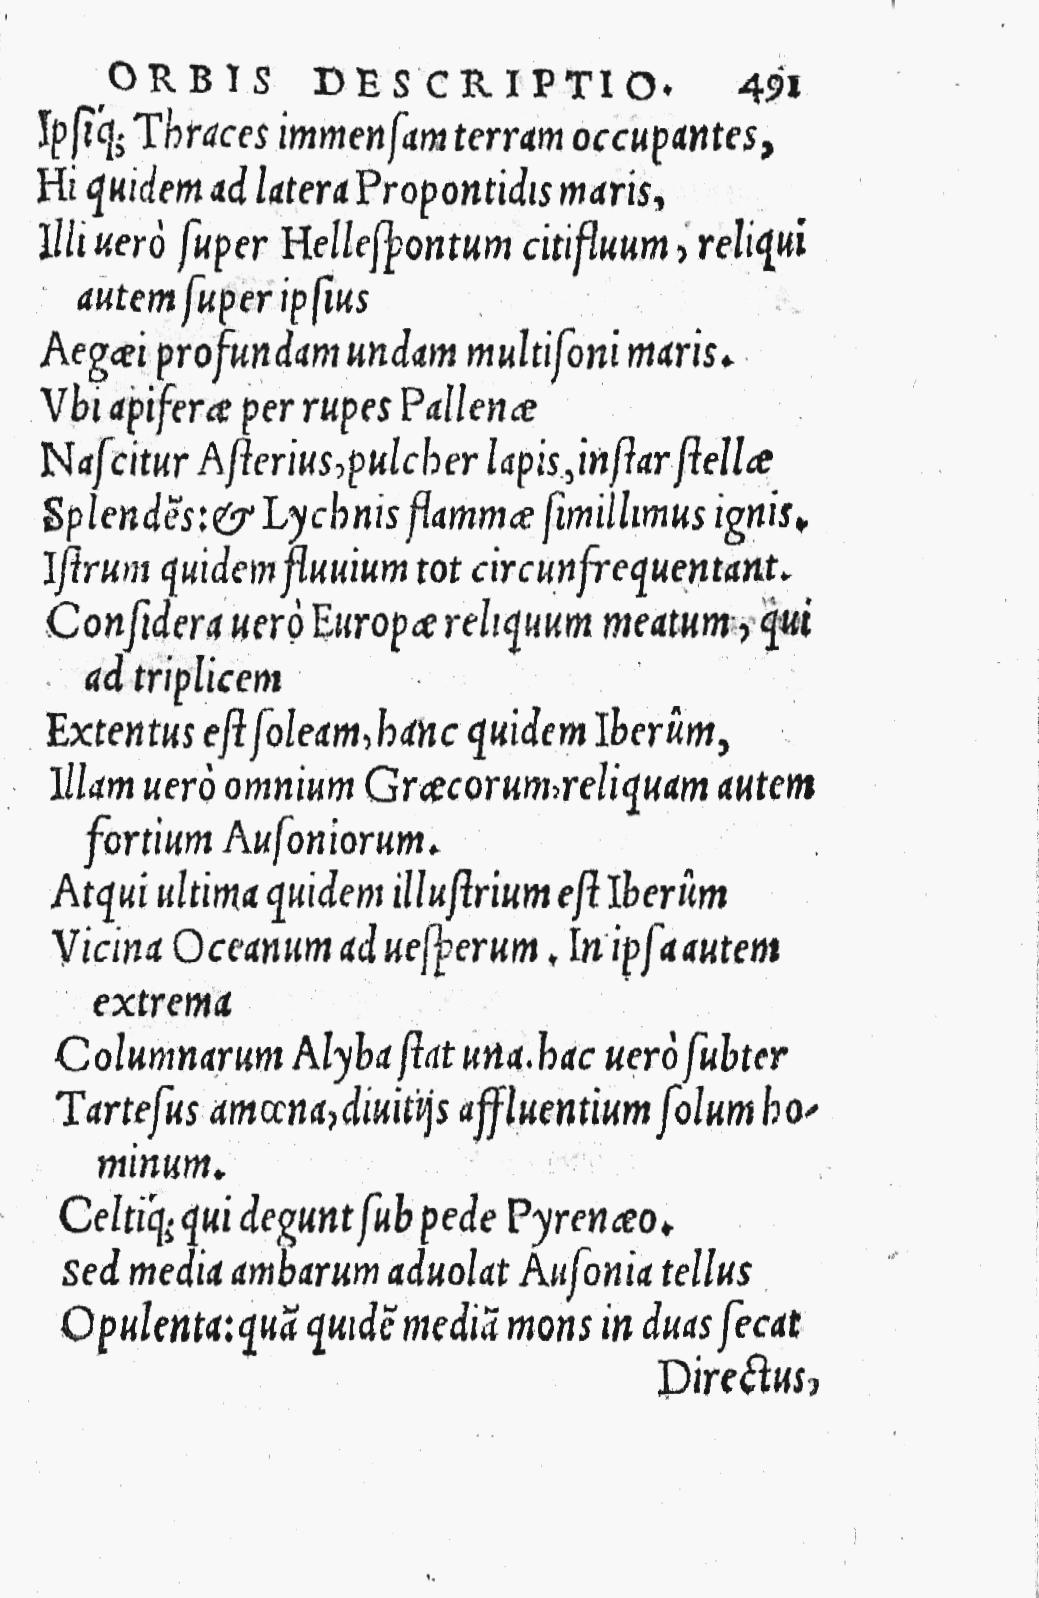 ORBIS DESCRIPTIO. 491
Ipſiq́; Thraces immenſam terram occupantes,
Hi quidem ad latera Propontidis maris,
Illi uerò ſuper Helleſpontum citifluum, reliqui
autem ſuper ipſius
Aegæi profundam undam multiſoni maris.
Vbi apiferæ per rupes Pallenæ
Naſcitur Aſterius, pulcher lapis, inſtar ſtellæ
Splendẽs: & Lychnis flammæ ſimillimus ignis.
Iſtrum quidem fluuium tot circunfrequentant.
Conſidera uerò Europæ reliquum meatum, qui
ad triplicem
Extentus eſt ſoleam, hanc quidem Iberûm,
Illam uerò omnium Græcorum, reliquam autem
fortium Auſoniorum.
Atqui ultima quidem illuſtrium eſt Iberûm
Vicina Oceanum ad ueſperum. In ipſa autem
extrema
Columnarum Alyba ſtat una. hac uerò ſubter
Tarteſus amœna, diuitijs affluentium ſolum ho-
minum.
Celtiq́; qui degunt ſub pede Pyrenæo.
Sed media ambarum aduolat Auſonia tellus
Opulenta: quã quidẽ mediã mons in duas ſecat
Directus,